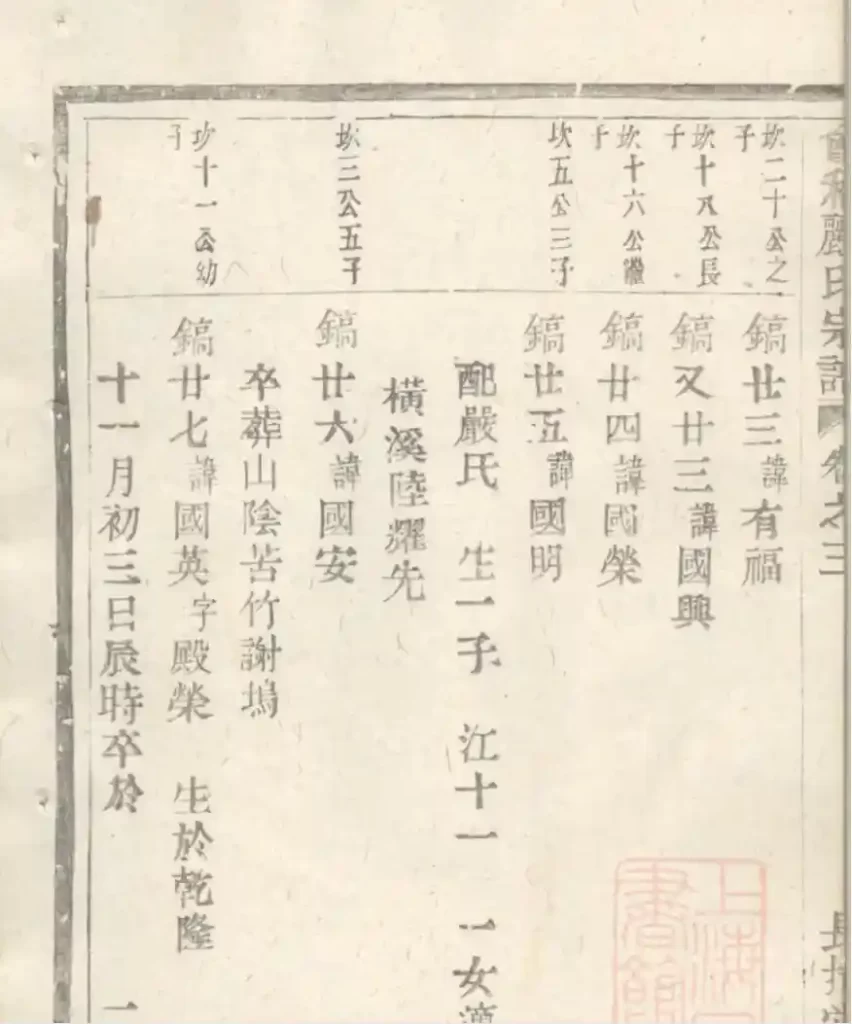 氏宗譜 卷之三
坎二十公之子
鎬廿三諱有福
坎十八公長子
鎬又廿三諱國興
坎十六公繼子
鎬廿四諱國榮
坎五公三子
鎬廿五諱國明
配嚴氏 生一子 江十一 一女適
橫溪陸耀先
坎三公五子
鎬廿六諱國安
卒葬山陰苦竹謝塢
坎十一公幼子
鎬廿七諱國英字殿榮 生於乾隆
十一月初三日辰時卒於
一
上海
書館